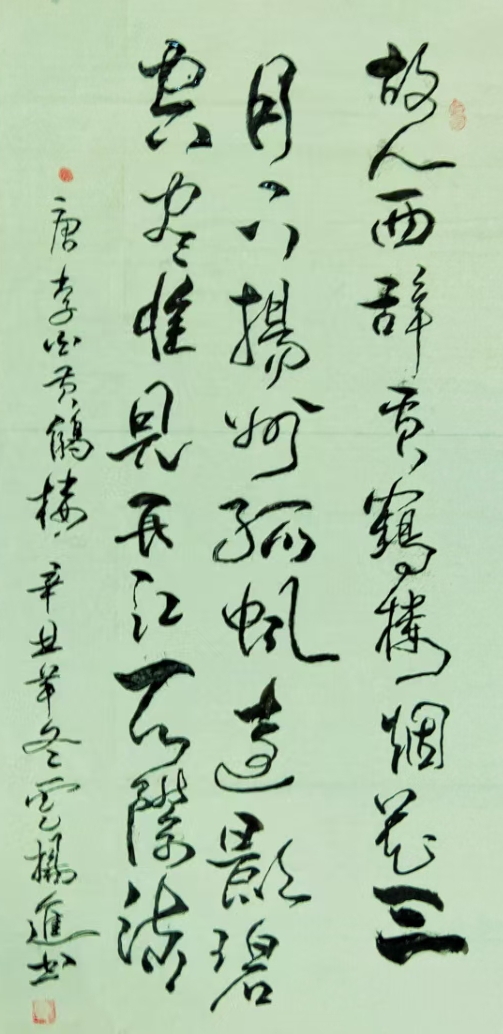 故人西辞黄鶴樓烟花三
月下揚州孤帆遠影碧
空尽惟見長江天際流
唐李白黄鶴樓 辛丑年冬雲楊進书